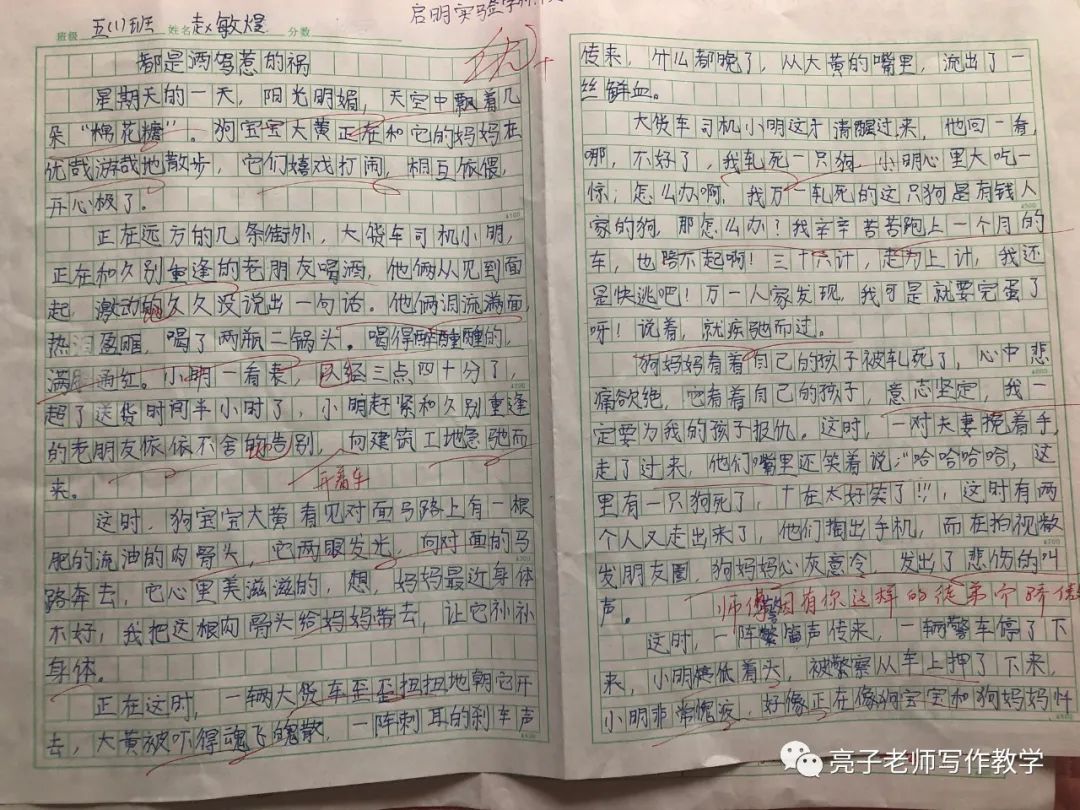 启明实验学
班级 五(1)班 姓名 赵敏煜 分数
优+
都是酒驾惹的祸
星期天的一天，阳光明媚，天空中飘着几
朵“棉花糖”。狗宝宝大黄正在和它的妈妈在
优哉游哉地散步，它们嬉戏打闹，相互依偎，
开心极了。
正在远方的几条街外，大货车司机小明，
正在和久别重逢的老朋友喝酒，他俩从见到面
起，激动的久久没说出一句话。他俩泪流满面，
热泪盈眶，喝了两瓶二锅头。喝得醉醺醺的，
满面红。小明一看表，已经三点四十分了，
超了送货时间半小时了，小明赶紧和久别重逢
的老朋友依依不舍的告别，向建筑工地急驰而
开着车
来。
这时，狗宝宝大黄看见对面马路上有一根
肥的流油的肉骨头，它两眼发光，向对面的马
路奔去，它心里美滋滋的，想，妈妈最近身体
不好，我把这根肉骨头给妈妈带去，让它补补
身体。
正在这时，一辆大货车歪歪扭扭地朝它开
去，大黄被吓得魂飞魄散，一阵刺耳的刹车声
传来，什么都晚了，从大黄的嘴里，流出了一
丝鲜血。
大货车司机小明这才清醒过来，他回一看，
哪，不好了，我轧死一只狗，小明心里大吃一
惊；怎么办啊，我万一轧死的这只狗是有钱人
家的狗，那怎么办？我辛辛苦苦跑上一个月的
车，也赔不起啊！三十六计，走为上计，我还
是快逃吧！万一人家发现，我可是就要完蛋了
呀！说着，就疾驰而过。
狗妈妈看着自己的孩子被轧死了，心中悲
痛欲绝，它看着自己的孩子，意志坚定，我一
定要为我的孩子报仇。这时，一对夫妻挽着手，
走了过来，他们嘴里还笑着说：“哈哈哈哈，这
里有一只狗死了，在太好笑了!!!，这时有两
个人又走出来了，他们掏出手机，而在拍视散
发朋友圈，狗妈妈心灰意冷，发出了悲伤的叫
声。
师傅因有你这样的徒弟个骄傲
这时，一阵警笛声传来，一辆警车停了下
来，小明低着头，被警察从车上押了下来，
小明非常愧疚，好像正在像狗宝宝和狗妈妈忏
亮子老师写作教学